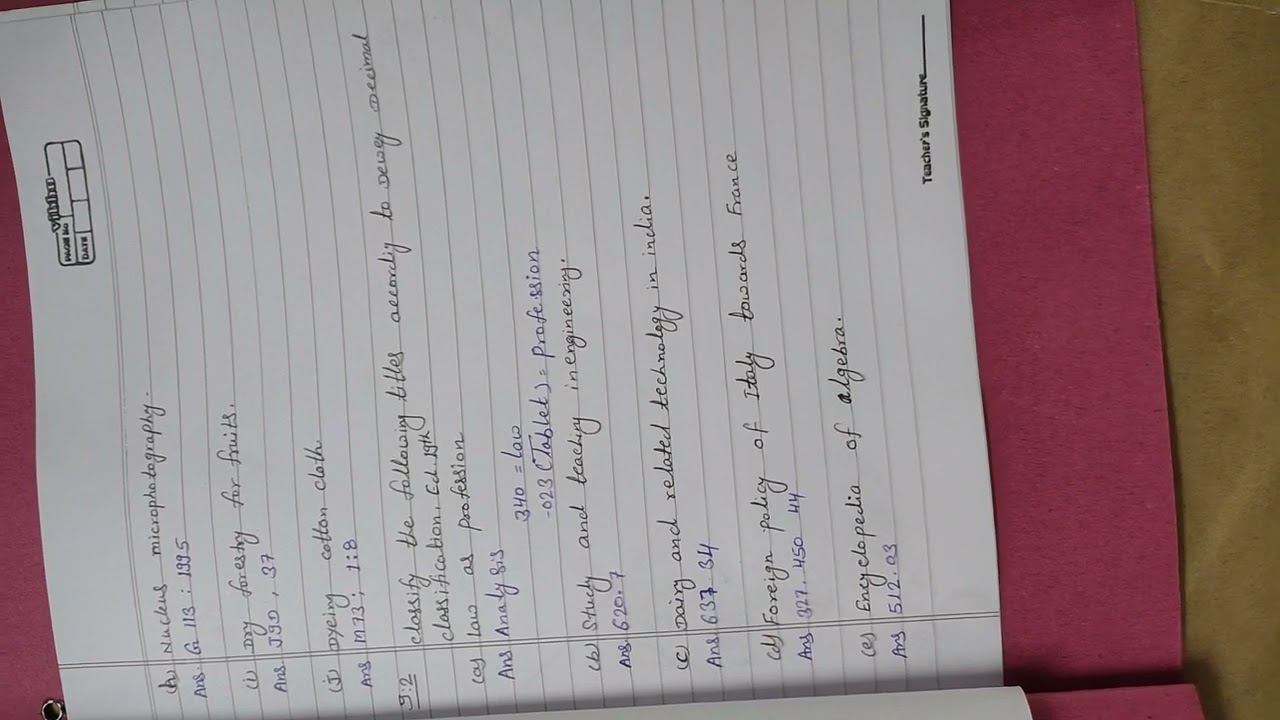 PAGE NO
DATE
(h) Nucleus microphotography.
Ans. G 113 : 1995
(i) Dry forestry for fruits.
Ans. J9D, 37
(J) Dyeing cotton cloth
Ans M73; 1:8
Q:2 classify the following titles accordig to Dewey Decimal
classification, Ed. 19th
(a) Law as profession
Ans Analysis 340 = law
-023 (Table1) = profession
(b) Study and teaching in engineering.
Ans. 620.7
(c) Dairy and related technology in india.
Ans 637.34
(d) Foreign policy of Italy towards France
Ans 327.450 44
(e) Encyclopedia of algebra.
Ans 512.03
Teacher's Signature